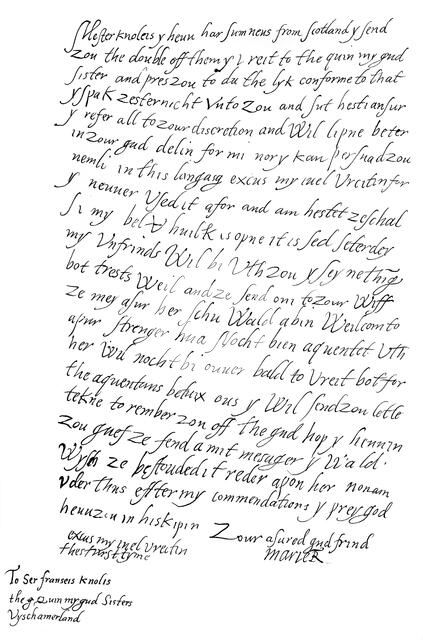 Mester knoleis y heuu har sum neus from scotland y send
zou the double off them y vreit to the quin my gud
sister and pres zou to du the lyk conforme to that
y spak zesternicht vnto zou and sut hesti ansur
y refer all to zour discretion and wil lipne beter
in zour gud delin for mi nor y kan persuad zou
nemli in this langasg excus my iuel vreitin for
y neuuer vsed it afor and am hestet ze schal
si my bel whuilk is opne it is sed seterday
my vnfrinds wil bi vth zou y sey nething
bot trests weil and ze send oni to zour wiff
ze mey asur her schu wald a bin weilcom to
apur strenger hua nocht bien aquentet vth
her wil nocht bi ouuer bald to vreit bot for
the aquentans betuix ous y wil send zou letle
tekne to rember zou off the gud hop y heuu in
zou guef ze fend a mit mesager y wald
wysh ze bestouded it reder apon her non ani
vder thus effter my commendations y prey god
heuu zou in his kipin
Zour asured gud frind
Marie R
excus my iuel vreitin
thes furst tyme
To Ser franseis knolis
the quin my gud sisters
vyschamerland